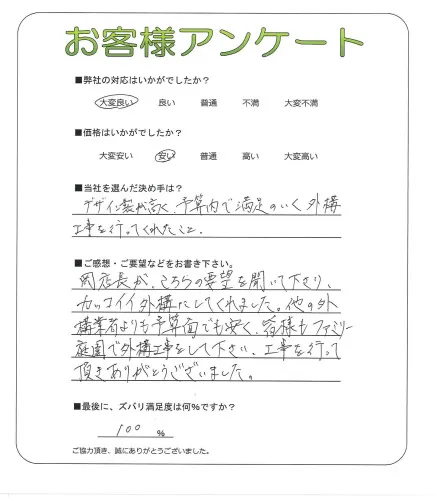 お客様アンケート
■弊社の対応はいかがでしたか?
大変良い 良い 普通 不満 大変不満
■価格はいかがでしたか?
大変安い 安い 普通 高い 大変高い
■当社を選んだ決め手は?
デザイン製が高く、予算内で満足のいく外構
工事を行ってくれたこと。
■ご感想・ご要望などをお書き下さい。
岡店長が、こちらの要望を聞いて下さり、
カッコイイ外構にしてくれました。他の外
構業者よりも予算面でも安く、皆様もファミリー
庭園で外構工事をして下さい。工事を行って
頂きありがとうございました。
■最後に、ズバリ満足度は何%ですか?
100 %
ご協力頂き、誠にありがとうございました。